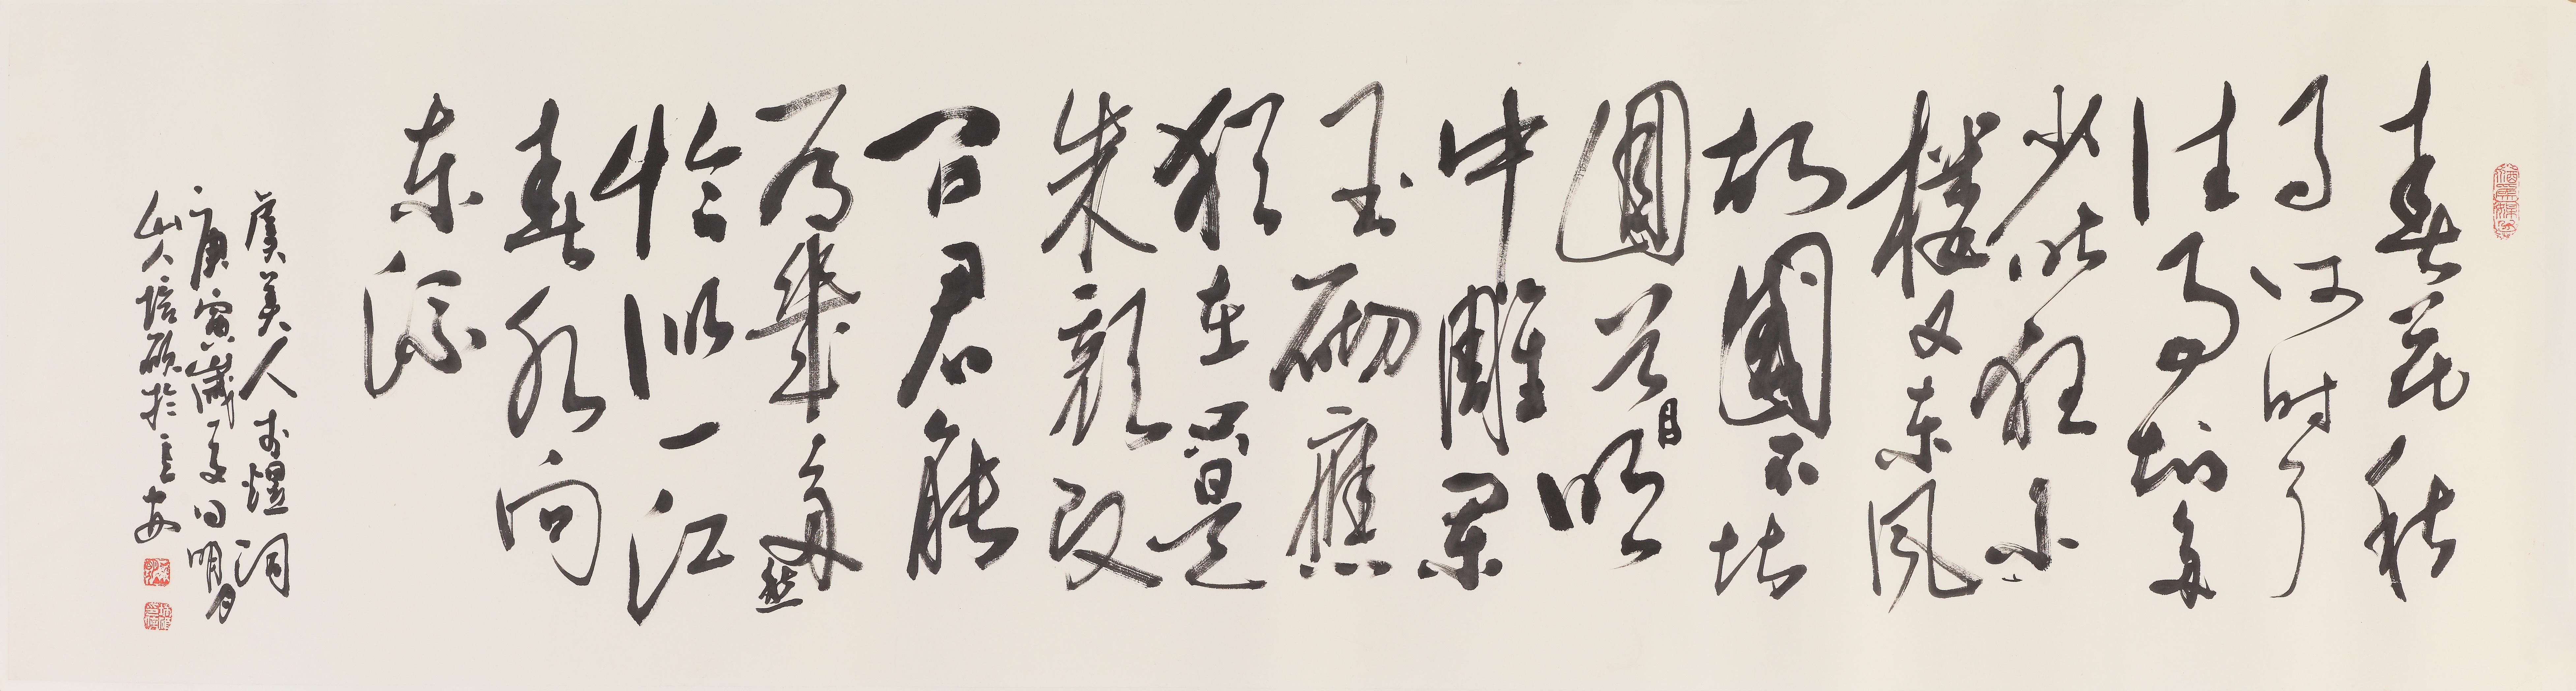 春花秋
月何时了
往事知多
少昨夜小
樓又东風
故國不堪
回首月明
中雕闌
玉砌應
猶在只是
朱顏改
问君能
有幾多愁
恰似一江
春水向
东流
虞美人李煜词
庚寅歲夏日明月
山人培碩於安